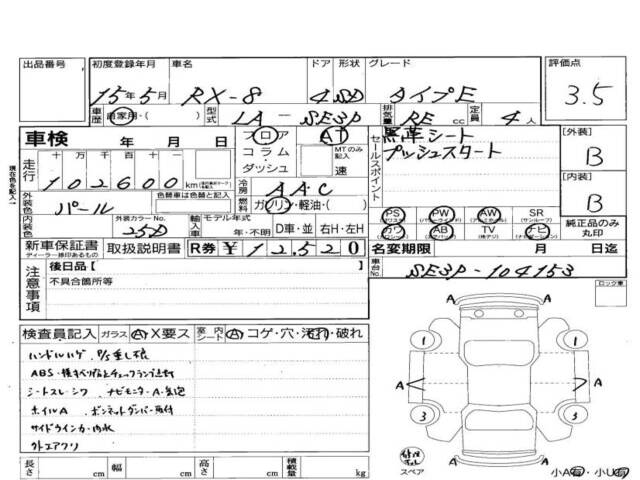 出品番号
初度登録年月 車名 ドア 形状 グレード 評価点
15年5月 RX-8 4 SD タイプE 3.5
車歴 自家用・( ) 型式 LA-SE3P 排気量 RE cc 定員 4人
車検 年 月 日
フロア AT
コラム MTのみ記入
ダッシュ 速
セールスポイント
黒革シート
プッシュスタート
[外装]
B
[内装]
B
走行 十万千百十一
102600 km
冷房 AAC
燃料 ガソリン・軽油・( )
外装色 パール 色替車は色替と記入
内装色 外装カラーNo. 25D
輸入車 モデル年式 年・不明 D車・並 右H・左H
PS PW AW SR (サンルーフ)
カワ AB TV ナビ
純正品のみ丸印
現在色を記入
新車保証書 取扱説明書 R券 ¥12,520
ディーラー捺印あるもの
名変期限 月 日迄
車台No. SE3P-104153
注意事項
後日品[ ]
不具合箇所等
ロック車
検査員記入 ガラス A X要ス 室内シート A コゲ・穴・汚れ・破れ
ABS・横すべり防止チェックランプ点灯
シートスレ・シワ ナビモニターA・気泡
ホイルA ボンネットダンパー取付
サイドウインカー内水
外エアワリ
A
A
1 1
A A
3 3
A
スペア
小A有・小U有
長さ cm 幅 cm 高さ cm 積載量 kg